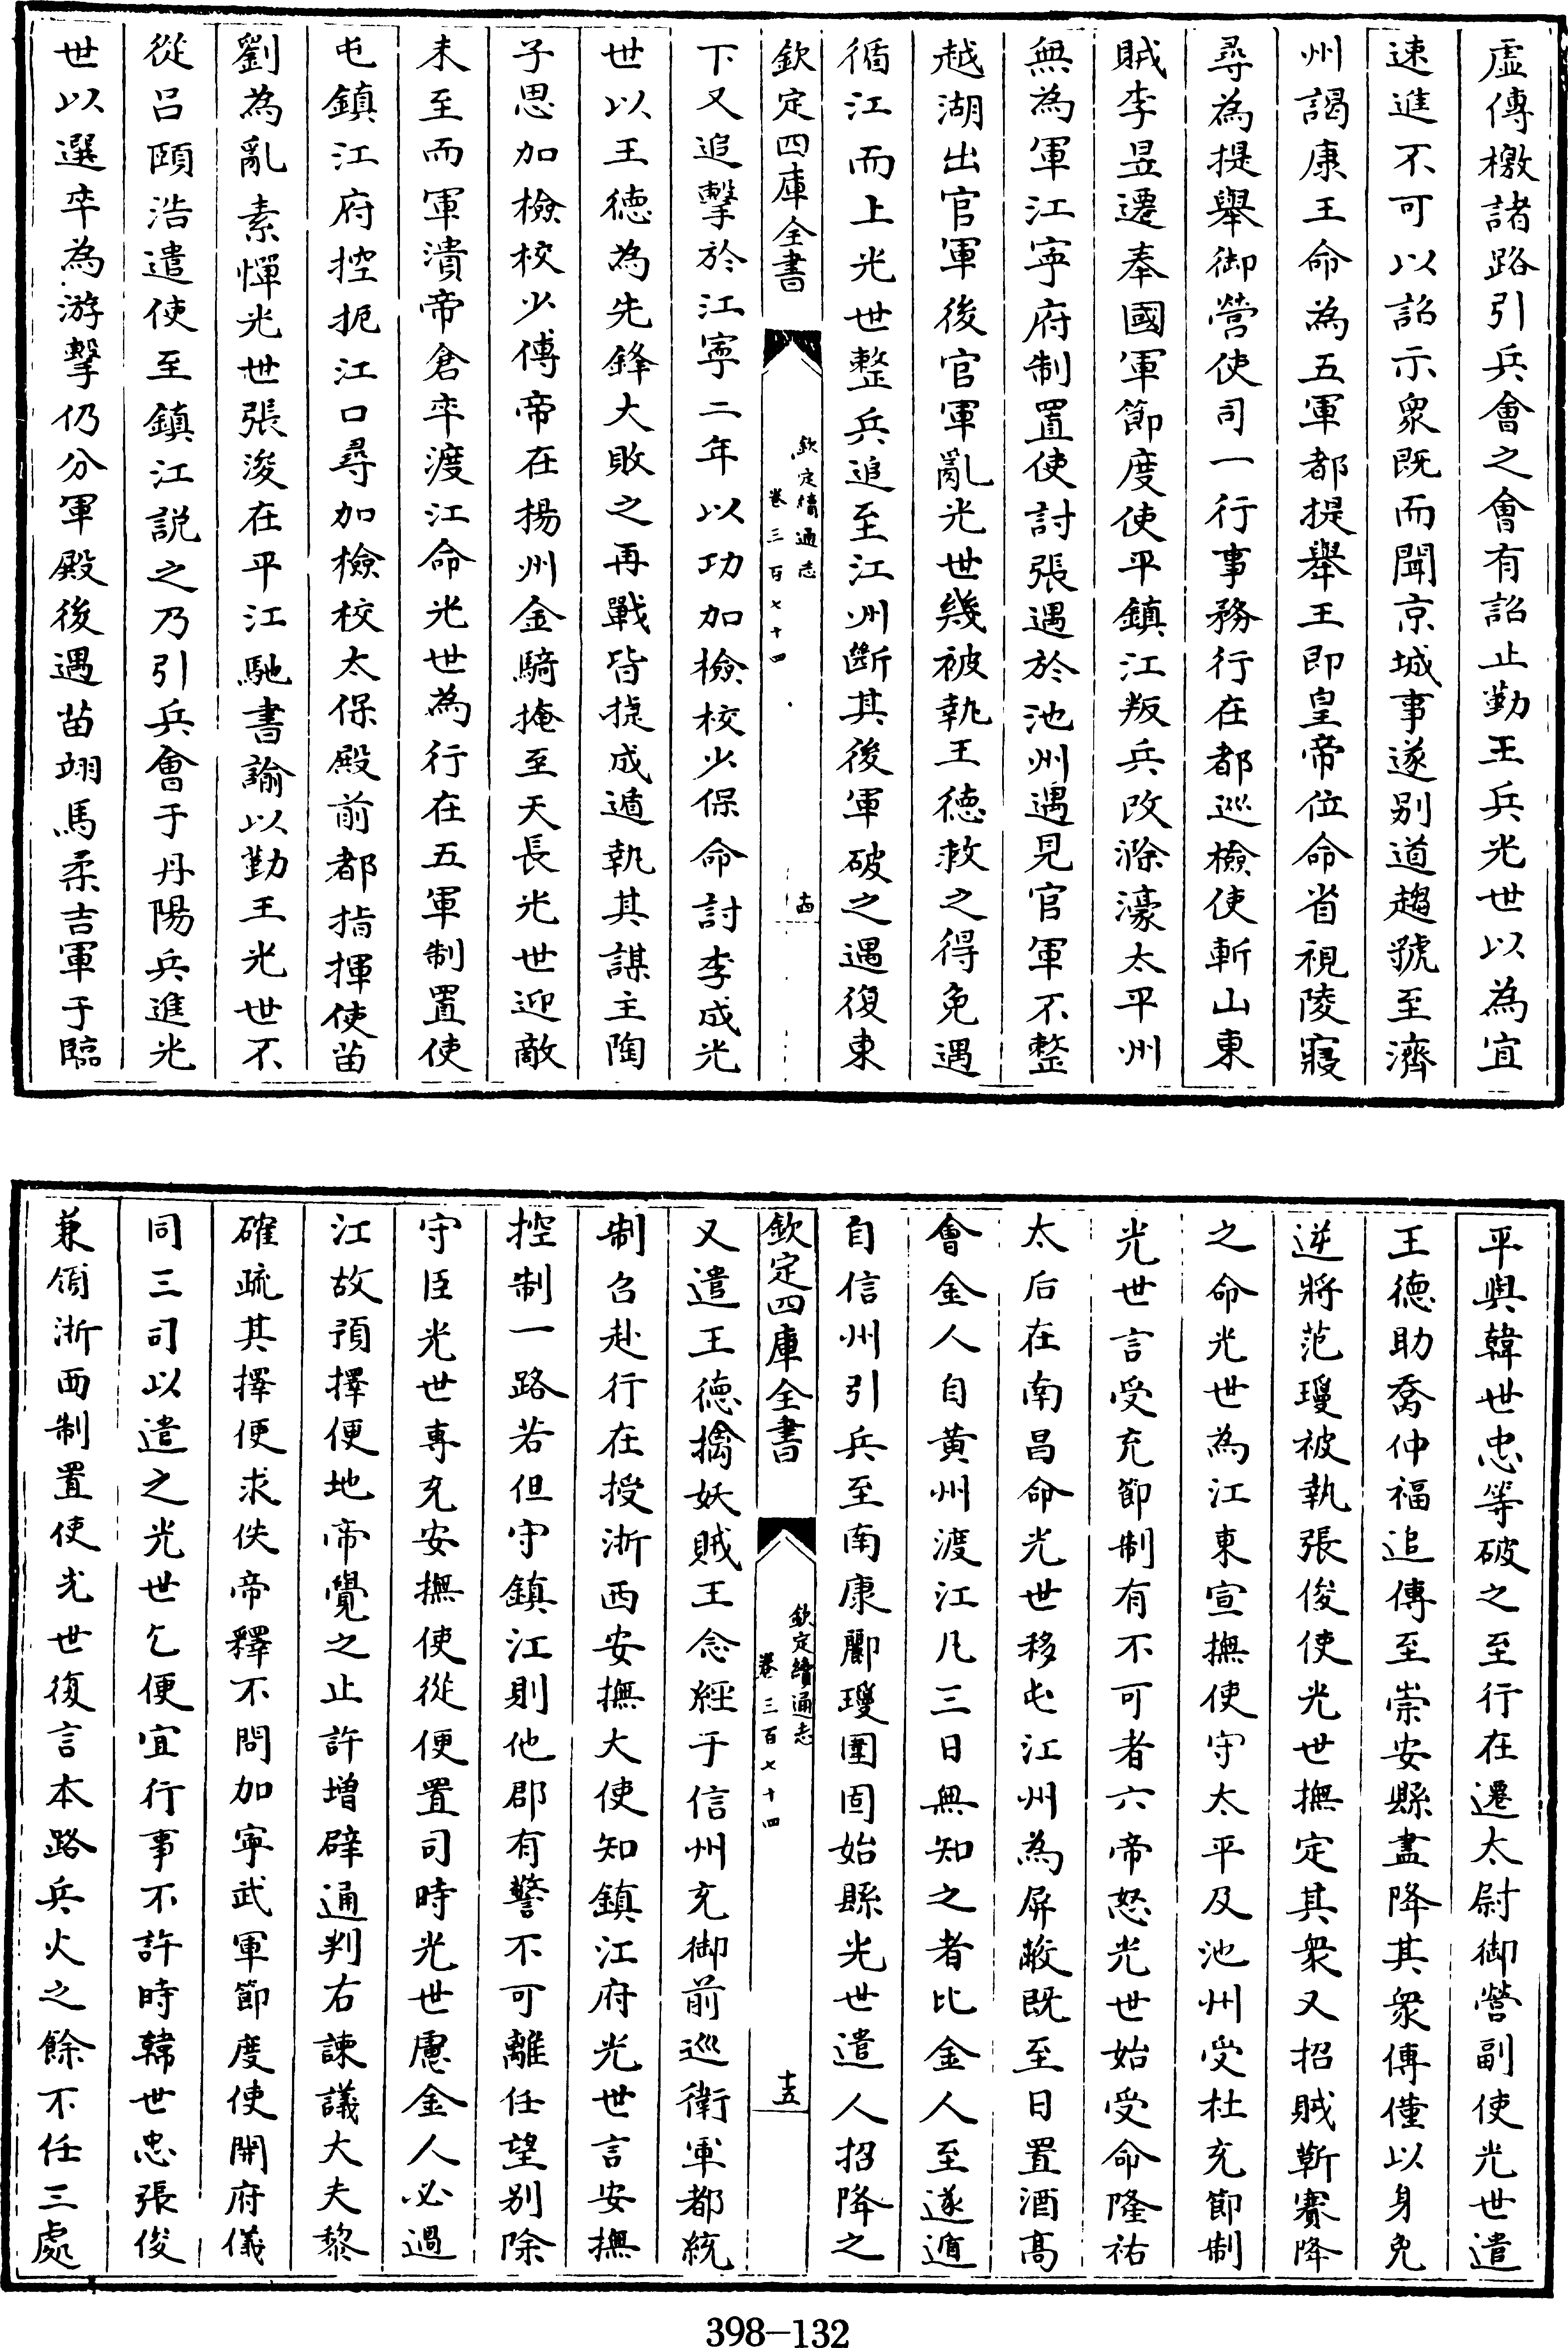 虛傳檄諸路引兵會之會有詔止勤王兵光世以為宜
速進不可以詔示衆既而聞京城事遂别道趨號至濟
州謁康王命為五軍都提舉王即皇帝位命省視陵寢
尋為提舉御營使司一行事務行在都巡檢使斬山東
賊李昱遷奉國軍節度使平鎮江叛兵改滁濠太平州
無為軍江寧府制置使討張遇於池州遇見官軍不整
越湖出官軍後官軍亂光世幾被執王德救之得免遇
循江而上光世整兵追至江州斷其後軍破之遇復東
欽定四庫全書
欽定續通志
卷三百七十四
十四
下又追擊於江寧二年以功加檢校少保命討李成光
世以王德為先鋒大敗之再戰皆捷成遁執其謀主陶
子思加檢校少傅帝在揚州金騎掩至天長光世迎敵
未至而軍潰帝倉卒渡江命光世為行在五軍制置使
屯鎮江府控扼江口尋加檢校太保殿前都指揮使苗
劉為亂素憚光世張浚在平江馳書諭以勤王光世不
從呂頤浩遣使至鎮江説之乃引兵會于丹陽兵進光
世以選卒為游擊仍分軍殿後遇苗翊馬柔吉軍于臨
平與韓世忠等破之至行在遷太尉御營副使光世遣
王德助喬仲福追傅至崇安縣盡降其衆傅僅以身免
逆將范瓊被執張俊使光世撫定其衆又招賊靳賽降
之命光世為江東宣撫使守太平及池州受杜充節制
光世言受充節制有不可者六帝怒光世始受命隆祐
太后在南昌命光世移屯江州為屏蔽既至日置酒高
會金人自黄州渡江凡三日無知之者比金人至遂遁
自信州引兵至南康酈瓊圍固始縣光世遣人招降之
欽定四庫全書
欽定續通志
卷三百七十四
十五
又遣王德擒妖賊王念經于信州充御前巡衛軍都統
制召赴行在授浙西安撫大使知鎮江府光世言安撫
控制一路若但守鎮江則他郡有警不可離任望别除
守臣光世專充安撫使從便置司時光世慮金人必過
江故預擇便地帝覺之止許增辟通判右諫議大夫黎
確疏其擇便求佚帝釋不問加寧武軍節度使開府儀
同三司以遣之光世乞便宜行事不許時韓世忠張俊
兼領浙西制置使光世復言本路兵火之餘不任三處
398-132